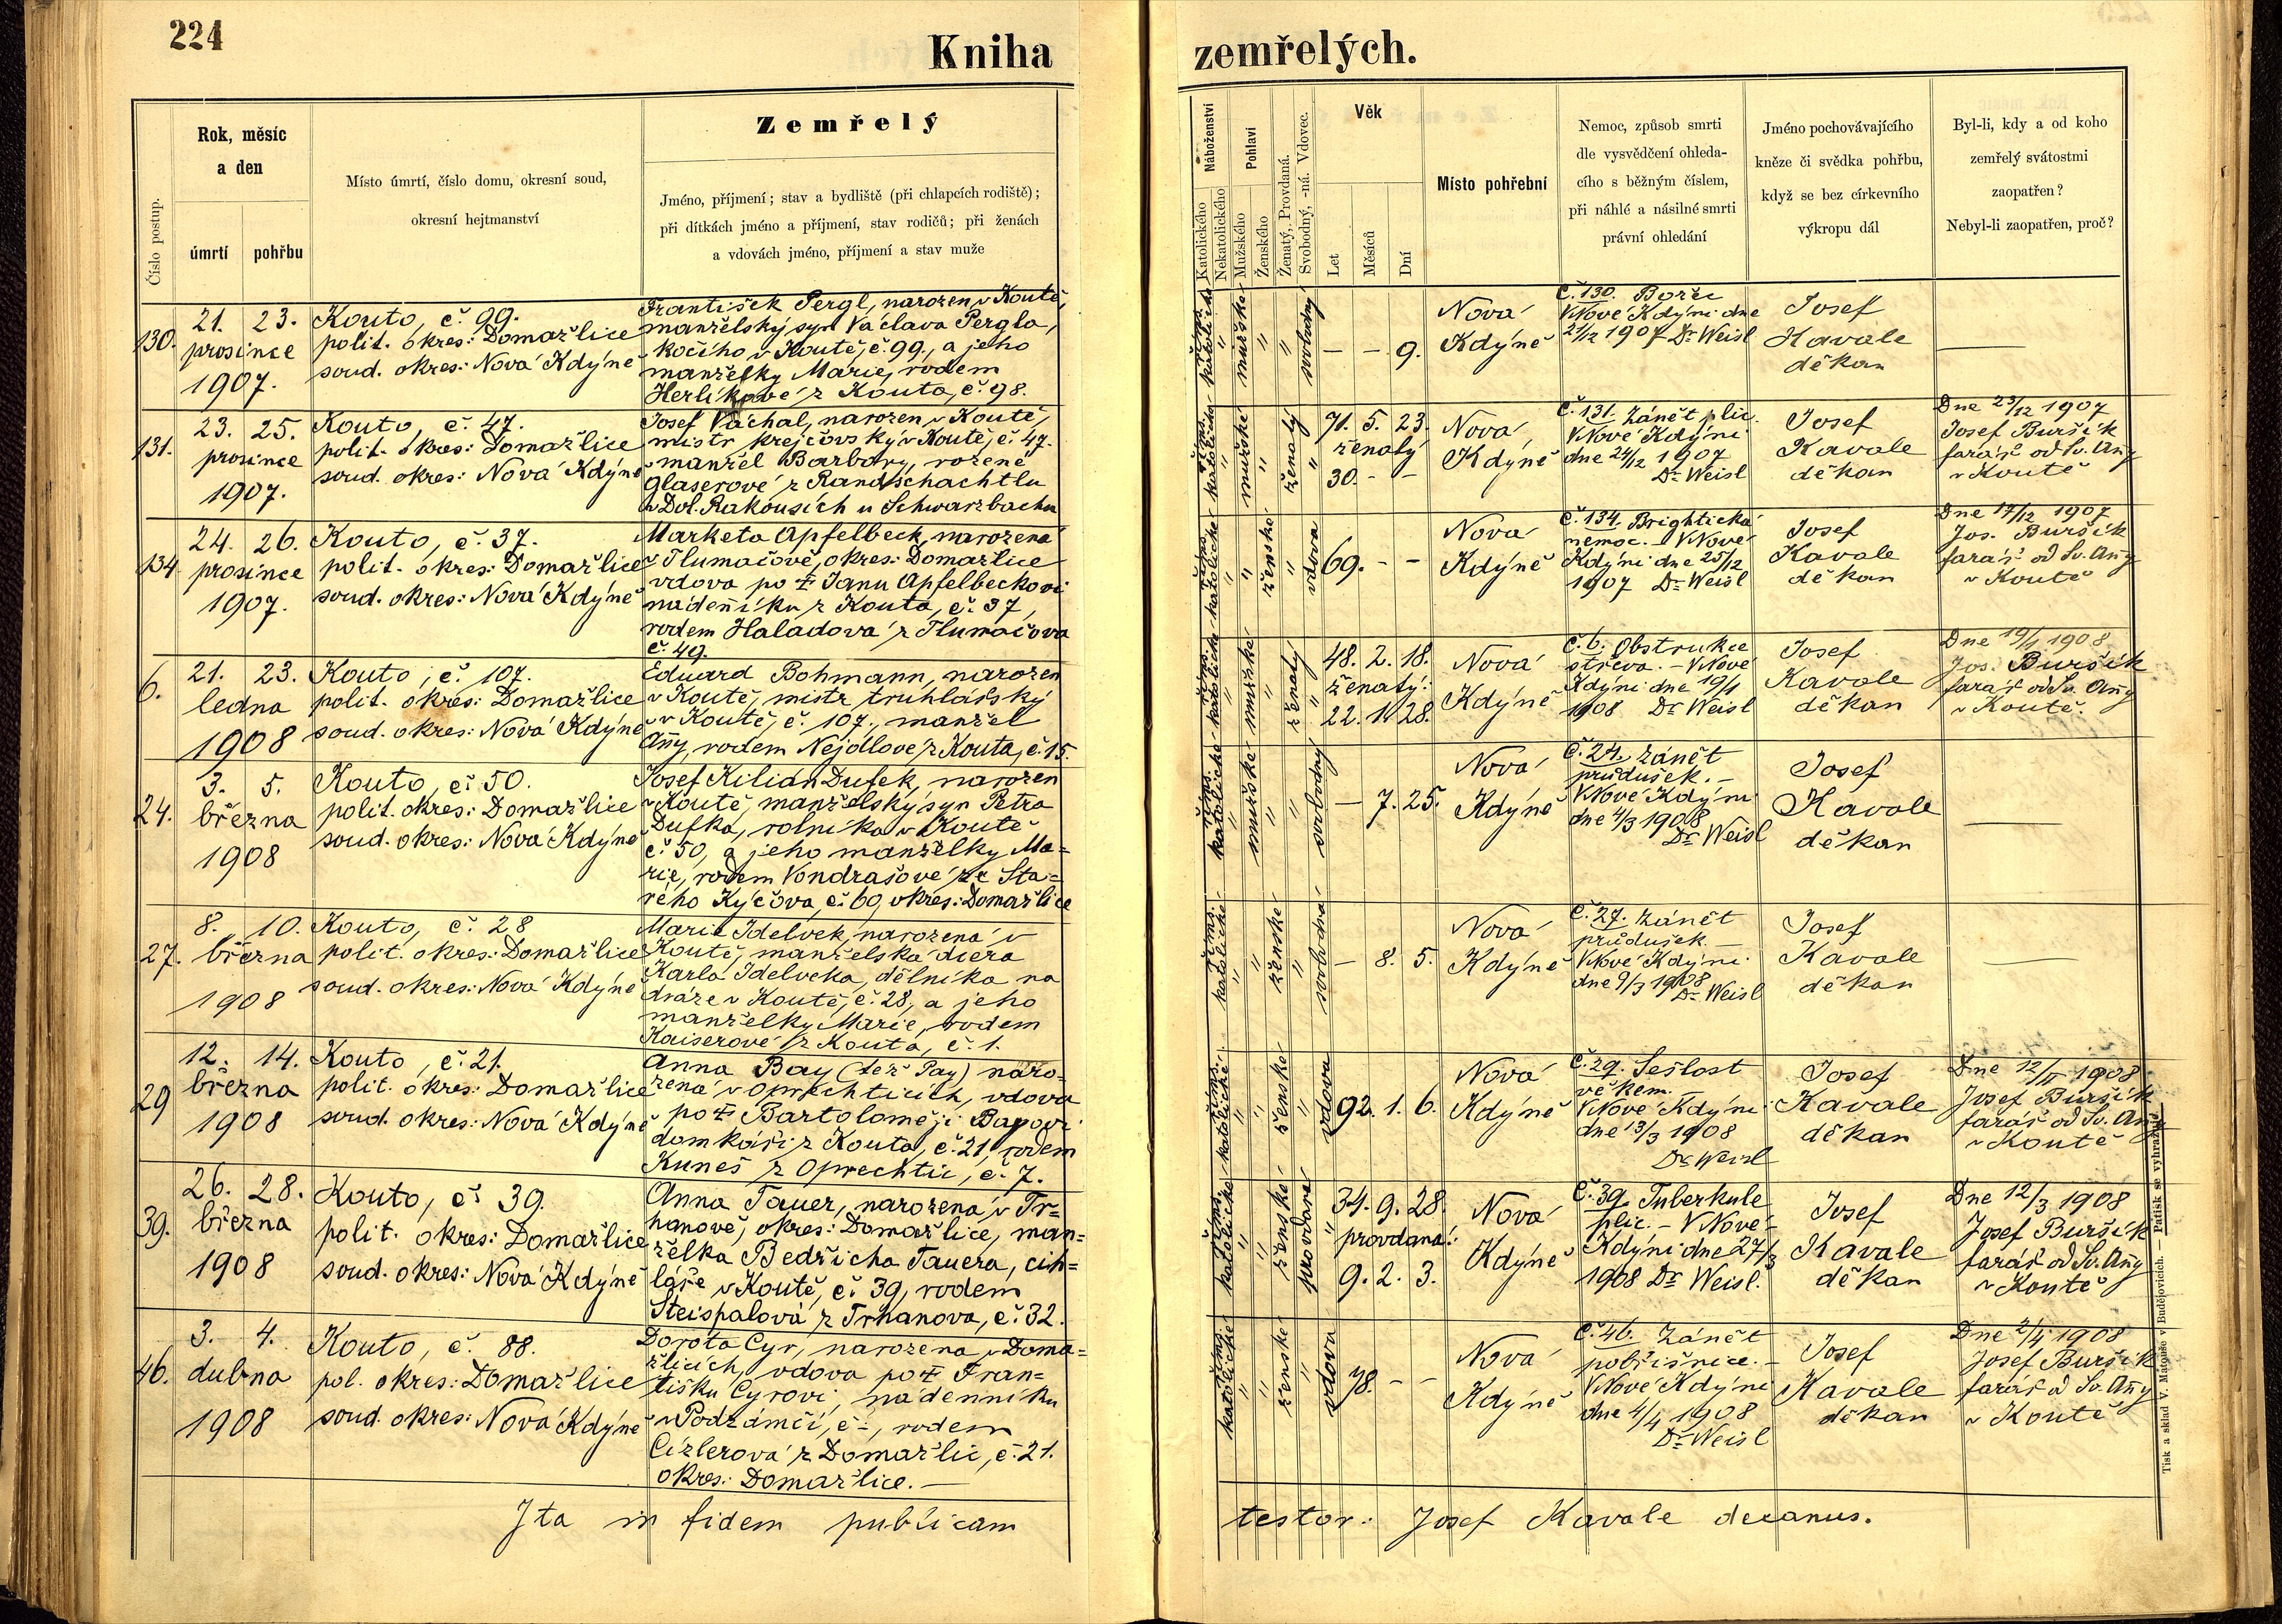 224
Kniha zemřelých.
Číslo postup.
Rok, měsíc
a den
úmrtí
pohřbu
Místo úmrtí, číslo domu, okresní soud,
okresní hejtmanství
Zemřelý
Jméno, příjmení; stav a bydliště (při chlapcích rodiště);
při dítkách jméno a příjmení, stav rodičů; při ženách
a vdovách jméno, příjmení a stav muže
Náboženství
Katolického
Nekatolického
Pohlaví
Mužského
Ženského
Ženatý, Provdaná.
Svobodný, -ná. Vdovec.
Věk
Let
Měsíců
Dní
Místo pohřební
Nemoc, způsob smrti
dle vysvědčení ohleda-
cího s běžným číslem,
při náhlé a násilné smrti
právní ohledání
Jméno pochovávajícího
kněze či svědka pohřbu,
když se bez církevního
výkropu dál
Byl-li, kdy a od koho
zemřelý svátostmi
zaopatřen?
Nebyl-li zaopatřen, proč?
130.
21. 23.
prosince
1907.
Kouto, č. 99.
polit. okres: Domažlice
soud. okres: Nová Kdýně
František Pergl, narozen v Koutě,
manželský syn Václava Pergla,
kočího v Koutě, č. 99., a jeho
manželky Marie, rodem
Herlíkové z Kouta, č. 98.
říms. katolické
mužské
svobodný
— — 9.
Nová
Kdýně
č. 130. Božec
V Nové Kdýni dne
21/12 1907 Dr Weisl
Josef
Kavale
děkan
—
131.
23. 25.
prosince
1907.
Kouto, č. 47.
polit. okres: Domažlice
soud. okres: Nová Kdýně
Josef Váchal, narozen v Koutě,
mistr krejčovský v Koutě, č. 47.
manžel Barbory, rozené
Glaserové z Randschachtlu
v Dol. Rakousích u Schwarzbachu
říms. katolické
mužské
ženatý
71. 5. 23.
ženatý
30. - -
Nová
Kdýně
č. 131. Zánět plic.
V Nové Kdýni
dne 24/12 1907
Dr Weisl
Josef
Kavale
děkan
Dne 23/12 1907
Josef Buršík
farář od Sv. Anny
v Koutě
134
24. 26.
prosince
1907.
Kouto, č. 37.
polit. okres: Domažlice
soud. okres: Nová Kdýně
Marketa Apfelbeck, narozena
v Tlumačově, okres: Domažlice
vdova po ‡ Janu Apfelbeckovi
nádenníku z Kouta, č. 37,
rodem Haladova z Tlumačova
č. 49.
říms. katolické
ženské
vdova
69. - -
Nová
Kdýně
č. 134. Brightická
nemoc. - V Nové
Kdýni dne 25/12
1907 Dr Weisl
Josef
Kavale
děkan
Dne 17/12 1907
Jos. Buršík
farář od Sv. Anny
v Koutě
6.
21. 23.
ledna
1908
Kouto, č. 107.
polit. okres: Domažlice
soud. okres: Nová Kdýně
Eduard Bohmann, narozen
v Koutě, mistr truhlářský
v Koutě, č. 107., manžel
Anny, rodem Nejdlové z Kouta, č. 15.
říms. katolické
mužské
ženatý
48. 2. 18.
ženatý:
22. 1. 28.
Nová
Kdýně
č. 6. Obstrukce
střeva. - V Nové
Kdýni dne 19/1
1908 Dr Weisl
Josef
Kavale
děkan
Dne 19/1 1908
Jos. Buršík
farář od Sv. Anny
v Koutě.
24.
3. 5.
března
1908
Kouto, č. 50.
polit. okres: Domažlice
soud. okres: Nová Kdýně
Josef Kilián Dufek, narozen
v Koutě, manželský syn Petra
Dufka, rolníka v Koutě
č. 50, a jeho manželky Ma=
rie, rodem Vondrašové ze Sta=
rého Kýčova, č. 60, okres: Domažlice
říms. katolické
mužské
svobodný
— 7. 25.
Nová
Kdýně
č. 24. Zánět
průdušek. -
V Nové Kdýni
dne 4/3 1908
Dr Weisl
Josef
Kavale
děkan
—
27.
8. 10.
března
1908
Kouto, č. 28
polit. okres: Domažlice
soud. okres: Nová Kdýně
Marie Idelvek, narozená v
Koutě, manželská dcera
Karla Idelveka, dělníka na
dráze v Koutě, č. 28, a jeho
manželky Marie, rodem
Kaiserové z Kouta, č. 1.
říms. katolické
ženské
svobodná
— 8. 5.
Nová
Kdýně
č. 27. Zánět
průdušek. —
V Nové Kdýni
dne 9/3 1908
Dr Weisl
Josef
Kavale
děkan
—
29
12. 14.
března
1908
Kouto, č. 21.
polit. okres: Domažlice
soud. okres: Nová Kdýně
Anna Bay (též Pay) naro=
zená v Oprechticích, vdova
po ‡ Bartoloměji Bayovi
domkáři z Kouta, č. 21, rodem
Kuneš z Oprechtic, č. 7.
říms. katolické
ženské
vdova
92. 1. 6.
Nová
Kdýně
č. 29. Sešlost
věkem.
V Nové Kdýni
dne 13/3 1908
Dr Weisl
Josef
Kavale
děkan
Dne 12/II 1908
Josef Buršík
farář od Sv. Anny
v Koutě
39.
26. 28.
března
1908
Kouto, č. 39.
polit. okres: Domažlice
soud. okres: Nová Kdýně
Anna Tauer, narozená v Tr=
hanově, okres: Domažlice, man=
želka Bedřicha Tauera, cih=
láře v Koutě, č. 39, rodem
Steispalová z Trhanova, č. 32.
říms. katolické
ženské
provdaná
34. 9. 28.
provdaná:
9. 2. 3.
Nová
Kdýně
č. 39. Tuberkule
plic. - V Nové
Kdýni dne 27/3
1908 Dr Weisl.
Josef
Kavale
děkan
Dne 12/3 1908
Josef Buršík
farář od Sv. Anny
v Koutě
46.
3. 4.
dubna
1908
Kouto, č. 88.
pol. okres: Domažlice
soud. okres: Nová Kdýně
Dorota Cyr, narozena v Doma=
žlicích, vdova po ‡ Fran=
tišku Cyrovi, nádenníku
v Podzámčí, č. -, rodem
Cízlerová z Domažlic, č. 21.
okres: Domažlice. —
říms. katolické
ženské
vdova
78. - -
Nová
Kdýně
č. 46. Zánět
pobřišnice. -
V Nové Kdýni
dne 4/4 1908
Dr Weisl
Josef
Kavale
děkan
Dne 2/4 1908
Josef Buršík
farář od Sv. Anny
v Koutě
Ita in fidem publicam testor: Josef Kavale decanus.
Tisk a sklad V. Matouše v Budějovicích. — Patisk se vyhražuje.